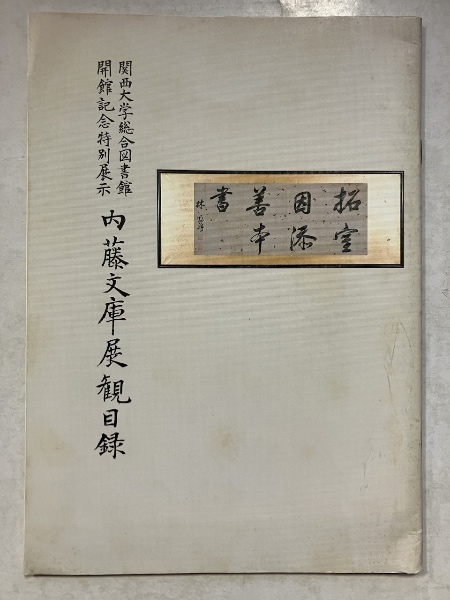 関西大学総合図書館
開館記念特別展示
内藤文庫展観目録
拓室
因添
善本
書